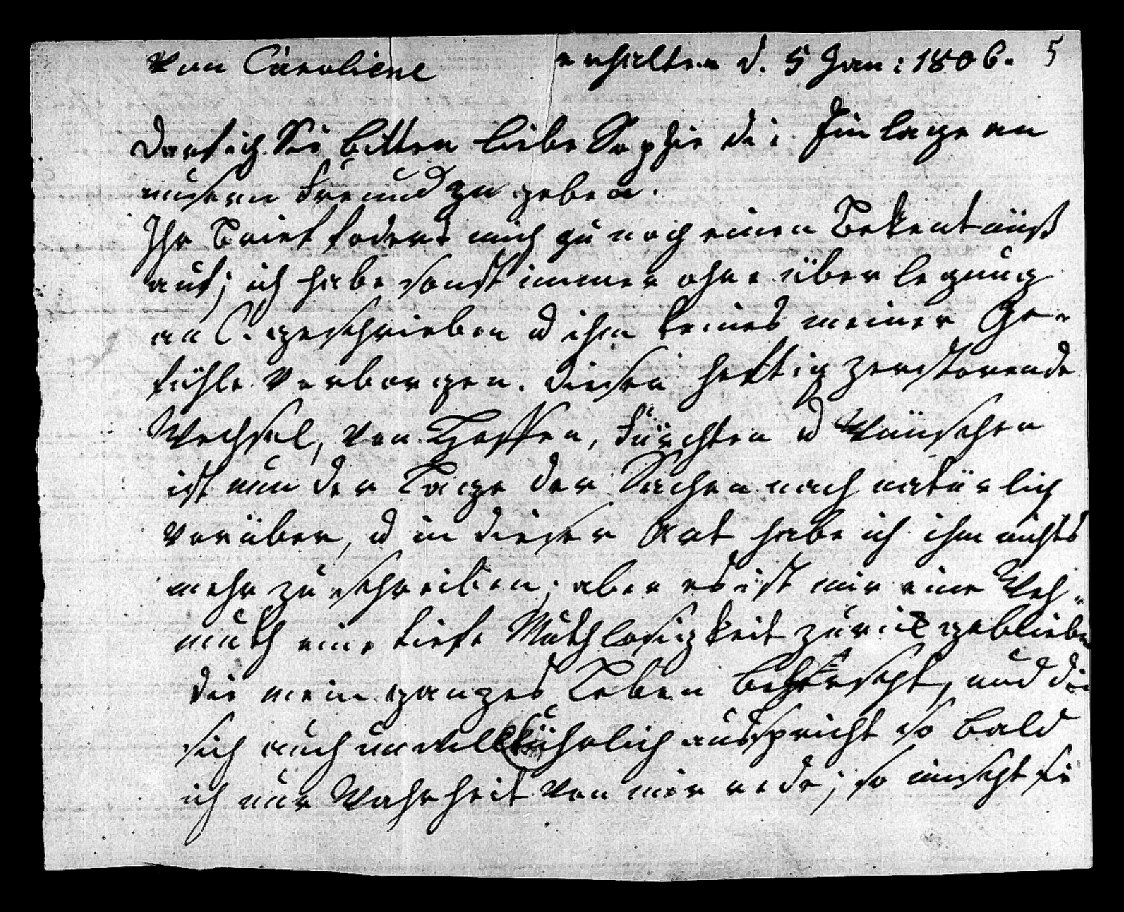 Von Caroliene erhalten d. 5 Jan: 1806. 5
Darf ich Sie bitten liebe Sophie die Einlage an
unsern Freund zu geben.
Ihr Brief fodert mich zu noch einen Bekentnüß
auf; ich habe sonst immer ohne überlegung
an C. geschrieben u ihm keines meiner Ge-
fühle verborgen. Dieser heftig zerstörende
Wechsel, von Hoffen, Fürchten u Wünschen
ist nun der Lage der Sachen nach natürlich
vorüber, u in dieser Art habe ich ihm nichts
mehr zu schreiben; aber es ist mir eine Weh-
muth eine tiefe Muthlosigkeit zurük geblieben
die mein ganzes Leben beherscht, und die
sich auch unwillkührlich ausspricht so bald
ich nur Wahrheit von mir rede; so mischt sie